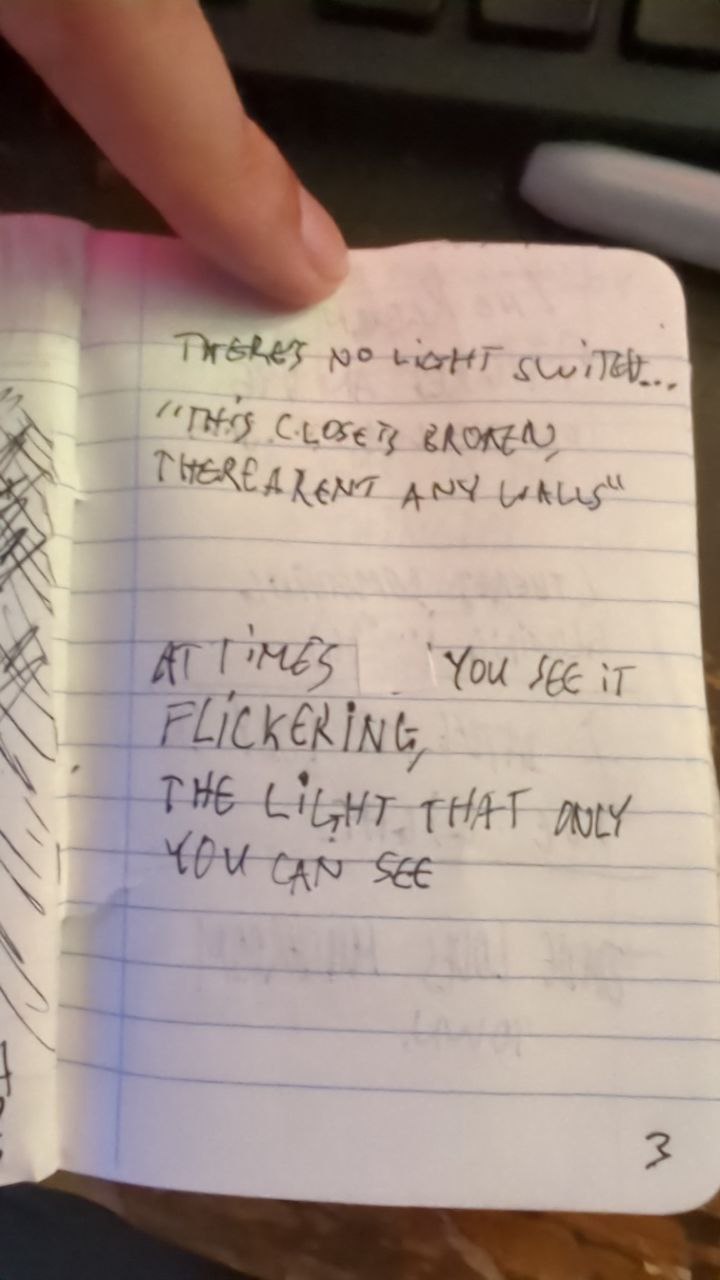 THERES NO LIGHT SWITCH...
"THIS CLOSETS BROKEN,
THERE ARENT ANY WALLS"
AT TIMES YOU SEE IT
FLICKERING,
THE LIGHT THAT ONLY
YOU CAN SEE
3